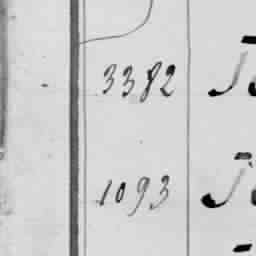 3382
1093